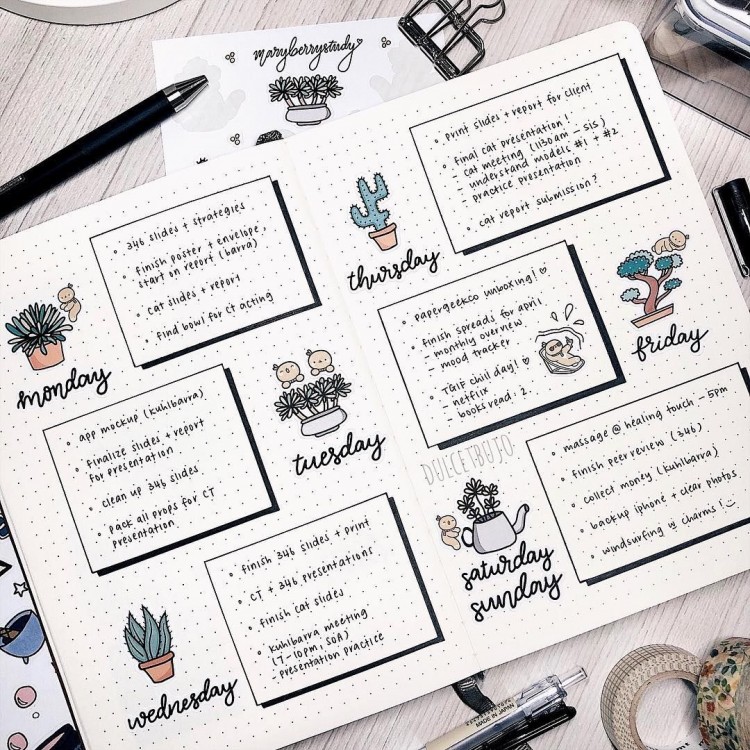 maryberrystudy
346 slides + strategies
finish poster + envelope,
start on report (barra)
cat slides + report
find bowl for CT acting
monday
app mockup (kuhlbarra)
finalize slides + report
for presentation
clean up 346 slides
pack all props for CT
presentation
tuesday
finish 346 slides + print
CT + 346 presentations
finish cat slides
kuhlbarra meeting
(7-10pm, SOA)
- presentation practice
wednesday
print slides + report for client
final cat presentation!
cat meeting (1130am - SIS)
- understand models #1 + #2
- practice presentation
cat report submission?
thursday
papergeekco unboxing!
finish spreads for april
- monthly overview
- mood tracker
TGIF chill day!
- netflix
- books read: 2.
friday
DULCETBUJO
massage @ healing touch - 5pm
finish peer review (346)
collect money (kuhlbarra)
backup iphone + clear photos
windsurfing w charms!
saturday
sunday
MADE IN JAPAN